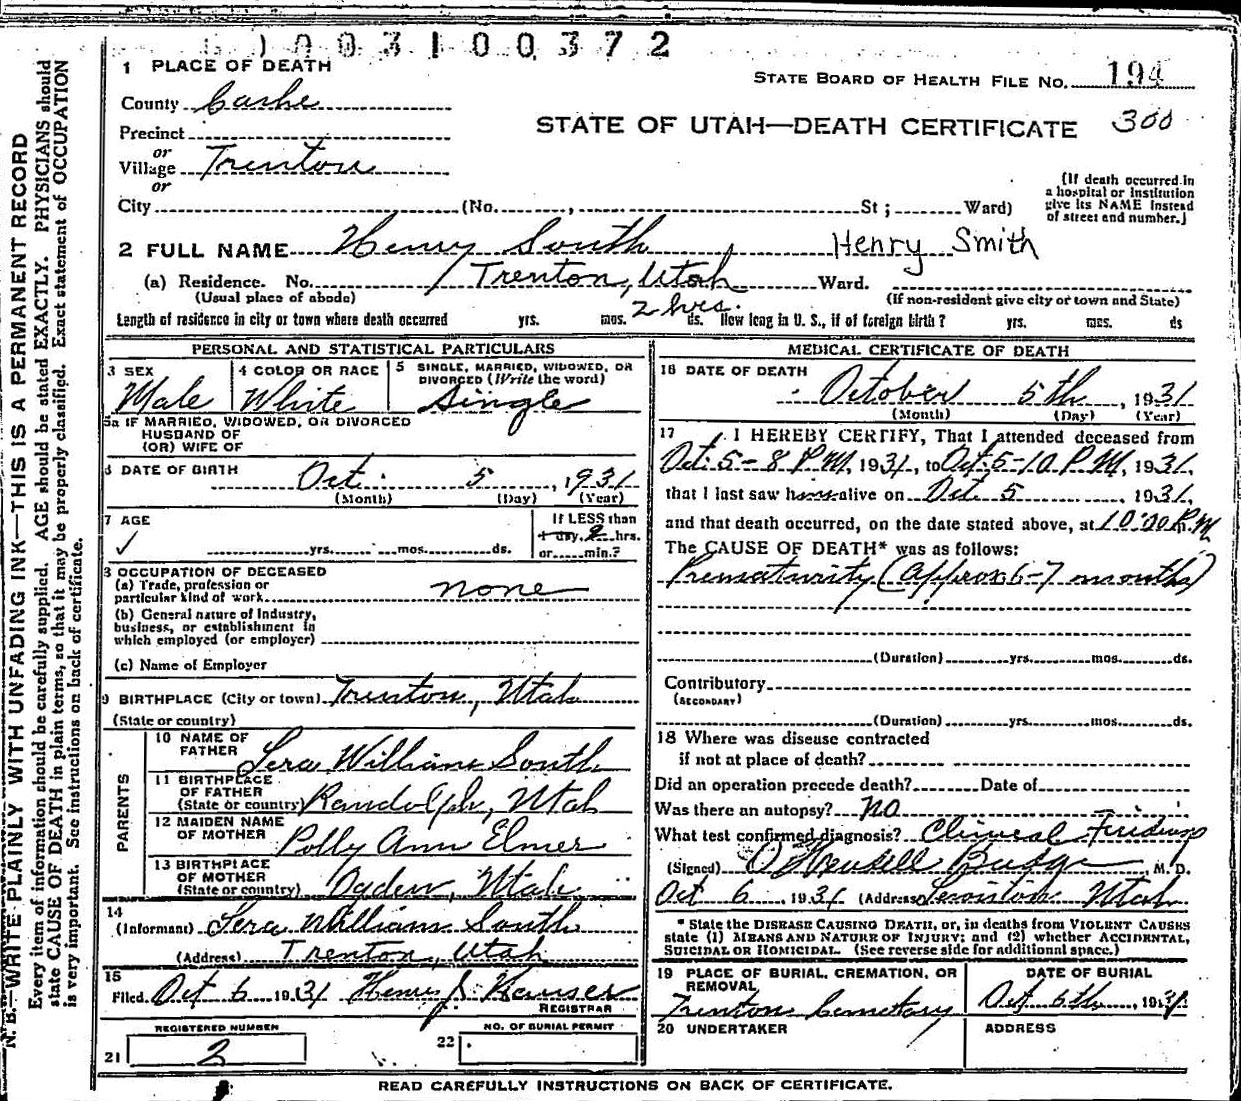 1003100372
1 PLACE OF DEATH
STATE BOARD OF HEALTH FILE NO. 194
County Cache
STATE OF UTAH—DEATH CERTIFICATE 300
Precinct
or
Village Trenton
or
(If death occurred in a hospital or institution give its NAME instead of street and number.)
City (No. , St ; Ward)
2 FULL NAME Henry South Henry Smith
(a) Residence. No. Trenton, Utah Ward.
(Usual place of abode) (If non-resident give city or town and State)
Length of residence in city or town where death occurred yrs. mos. 2 hrs. ds. How long in U. S., if of foreign birth? yrs. mos. ds
PERSONAL AND STATISTICAL PARTICULARS
3 SEX 4 COLOR OR RACE 5 SINGLE, MARRIED, WIDOWED, OR DIVORCED (Write the word)
Male White Single
5a IF MARRIED, WIDOWED, OR DIVORCED
HUSBAND OF
(OR) WIFE OF
6 DATE OF BIRTH Oct. 5, 1931
(Month) (Day) (Year)
7 AGE If LESS than
✓ yrs. mos. ds. 1 day, 2 hrs.
or min.?
8 OCCUPATION OF DECEASED
(a) Trade, profession or
particular kind of work none
(b) General nature of Industry,
business, or establishment in
which employed (or employer)
(c) Name of Employer
9 BIRTHPLACE (City or town) Trenton, Utah
(State or country)
PARENTS
10 NAME OF FATHER Lera William South
11 BIRTHPLACE OF FATHER (State or country) Randolph, Utah
12 MAIDEN NAME OF MOTHER Polly Ann Elmer
13 BIRTHPLACE OF MOTHER (State or country) Ogden, Utah
14
(Informant) Lera William South
(Address) Trenton, Utah
15
Filed Oct 6 1931 Henry J.
REGISTRAR
REGISTERED NUMBER NO. OF BURIAL PERMIT
21 2 22
MEDICAL CERTIFICATE OF DEATH
16 DATE OF DEATH
October 5th, 1931
(Month) (Day) (Year)
17 I HEREBY CERTIFY, That I attended deceased from
Oct. 5 - 8 P.M, 1931, to Oct. 5 - 10 P.M, 1931,
that I last saw him alive on Oct 5, 1931,
and that death occurred, on the date stated above, at 10:00 P.M
The CAUSE OF DEATH* was as follows:
Prematurity (Approx 6-7 months)
(Duration) yrs. mos. ds.
Contributory
(SECONDARY)
(Duration) yrs. mos. ds.
18 Where was disease contracted
if not at place of death?
Did an operation precede death? Date of
Was there an autopsy? No
What test confirmed diagnosis? Clinical Findings
(Signed) Budge, M. D.
Oct 6, 1931 (Address) Lewiston Utah
* State the DISEASE CAUSING DEATH, or, in deaths from VIOLENT CAUSES
state (1) MEANS AND NATURE OF INJURY; and (2) whether ACCIDENTAL,
SUICIDAL OR HOMICIDAL. (See reverse side for additional space.)
19 PLACE OF BURIAL, CREMATION, OR REMOVAL DATE OF BURIAL
Trenton Cemetary Oct 6th, 1931
20 UNDERTAKER ADDRESS
READ CAREFULLY INSTRUCTIONS ON BACK OF CERTIFICATE.
N. B.—WRITE PLAINLY WITH UNFADING INK—THIS IS A PERMANENT RECORD
Every item of information should be carefully supplied. AGE should be stated EXACTLY. PHYSICIANS should
state CAUSE OF DEATH in plain terms, so that it may be properly classified. Exact statement of OCCUPATION
is very important. See instructions on back of certificate.